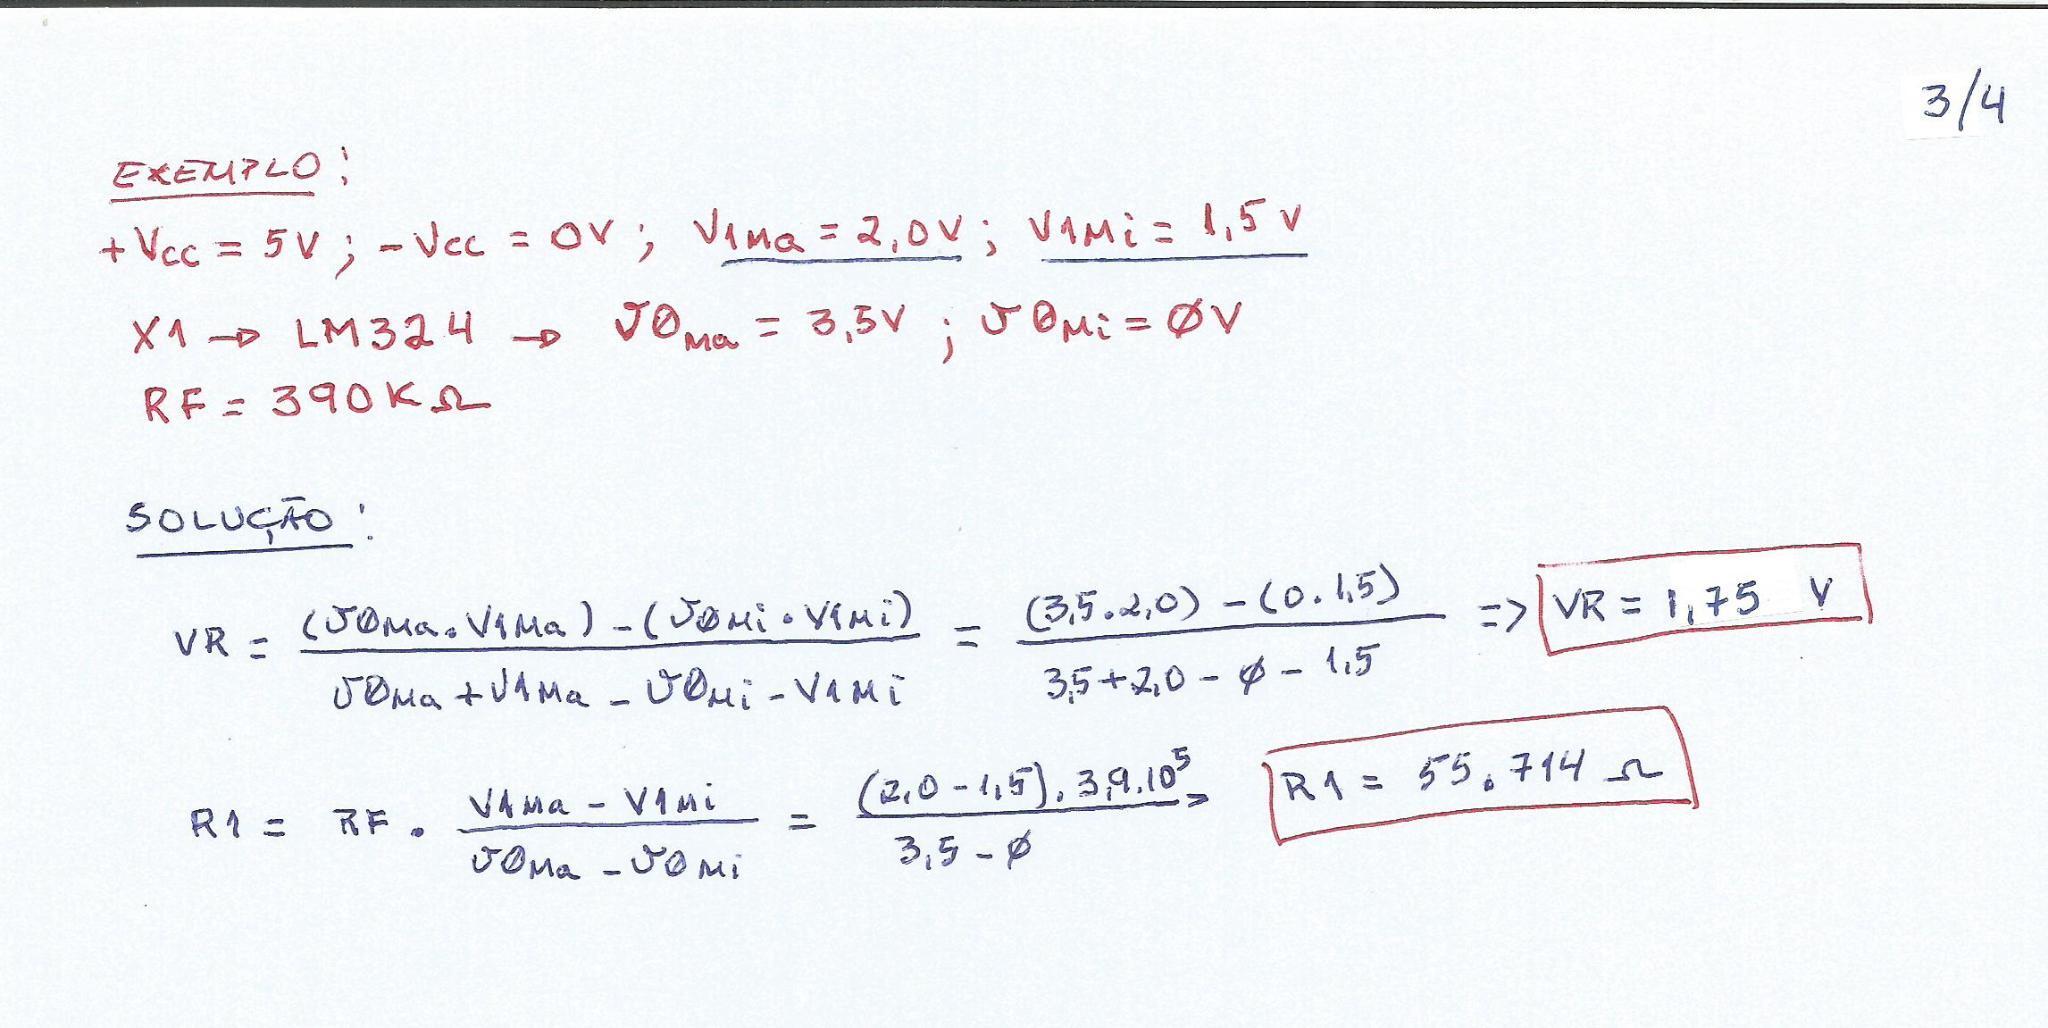 3/4
EXEMPLO:
+Vcc = 5V; -Vcc = 0V; V1Ma = 2,0V; V1Mi = 1,5V
X1 → LM324 → vØMa = 3,5V; vØMi = ØV
RF = 390KΩ
SOLUÇÃO:
VR = (vØMa.V1Ma) - (vØMi.V1Mi) / vØMa + V1Ma - vØMi - V1Mi = (3,5.2,0) - (0.1,5) / 3,5 + 2,0 - Ø - 1,5 => VR = 1,75 V
R1 = RF . V1Ma - V1Mi / vØMa - vØMi = (2,0 - 1,5).3,9.10⁵ / 3,5 - Ø => R1 = 55.714 Ω